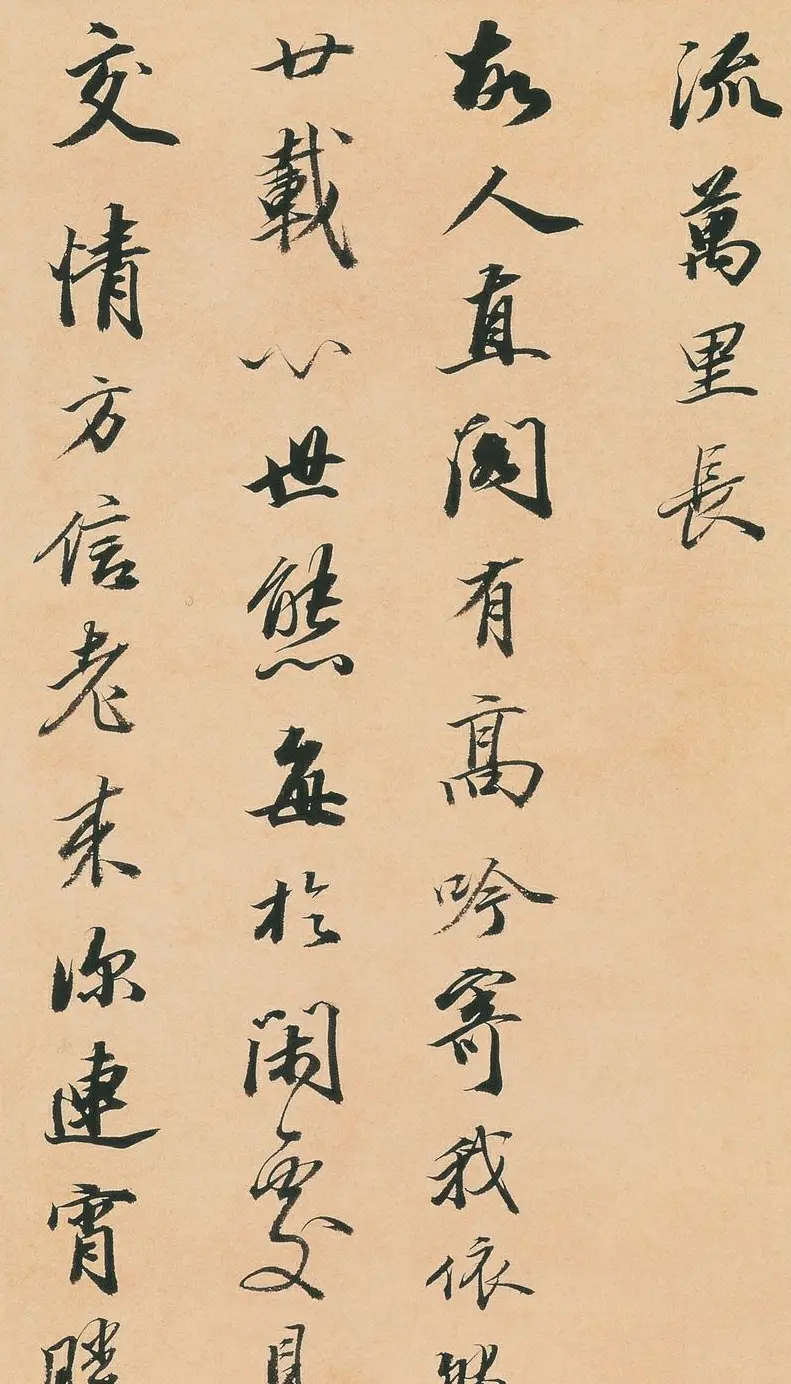 流萬里長
故人直閣有高吟寄我依
廿載心世態每於閑處見
交情方信老來深連宵